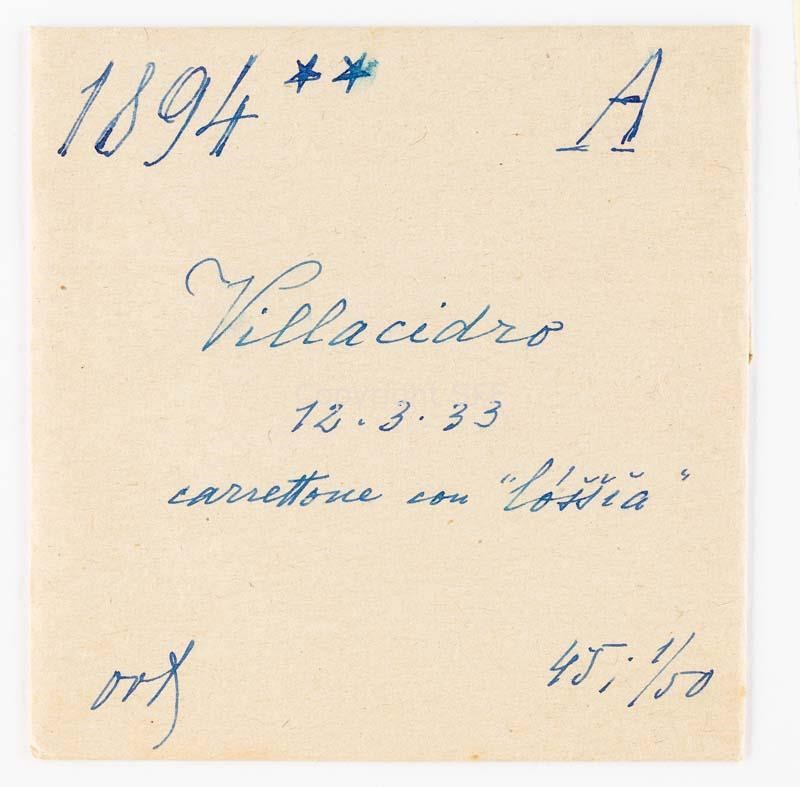 1894 ** A
Villacidro
12.3.33
carrettone con "lóššĭă"
ort
45; 1/50